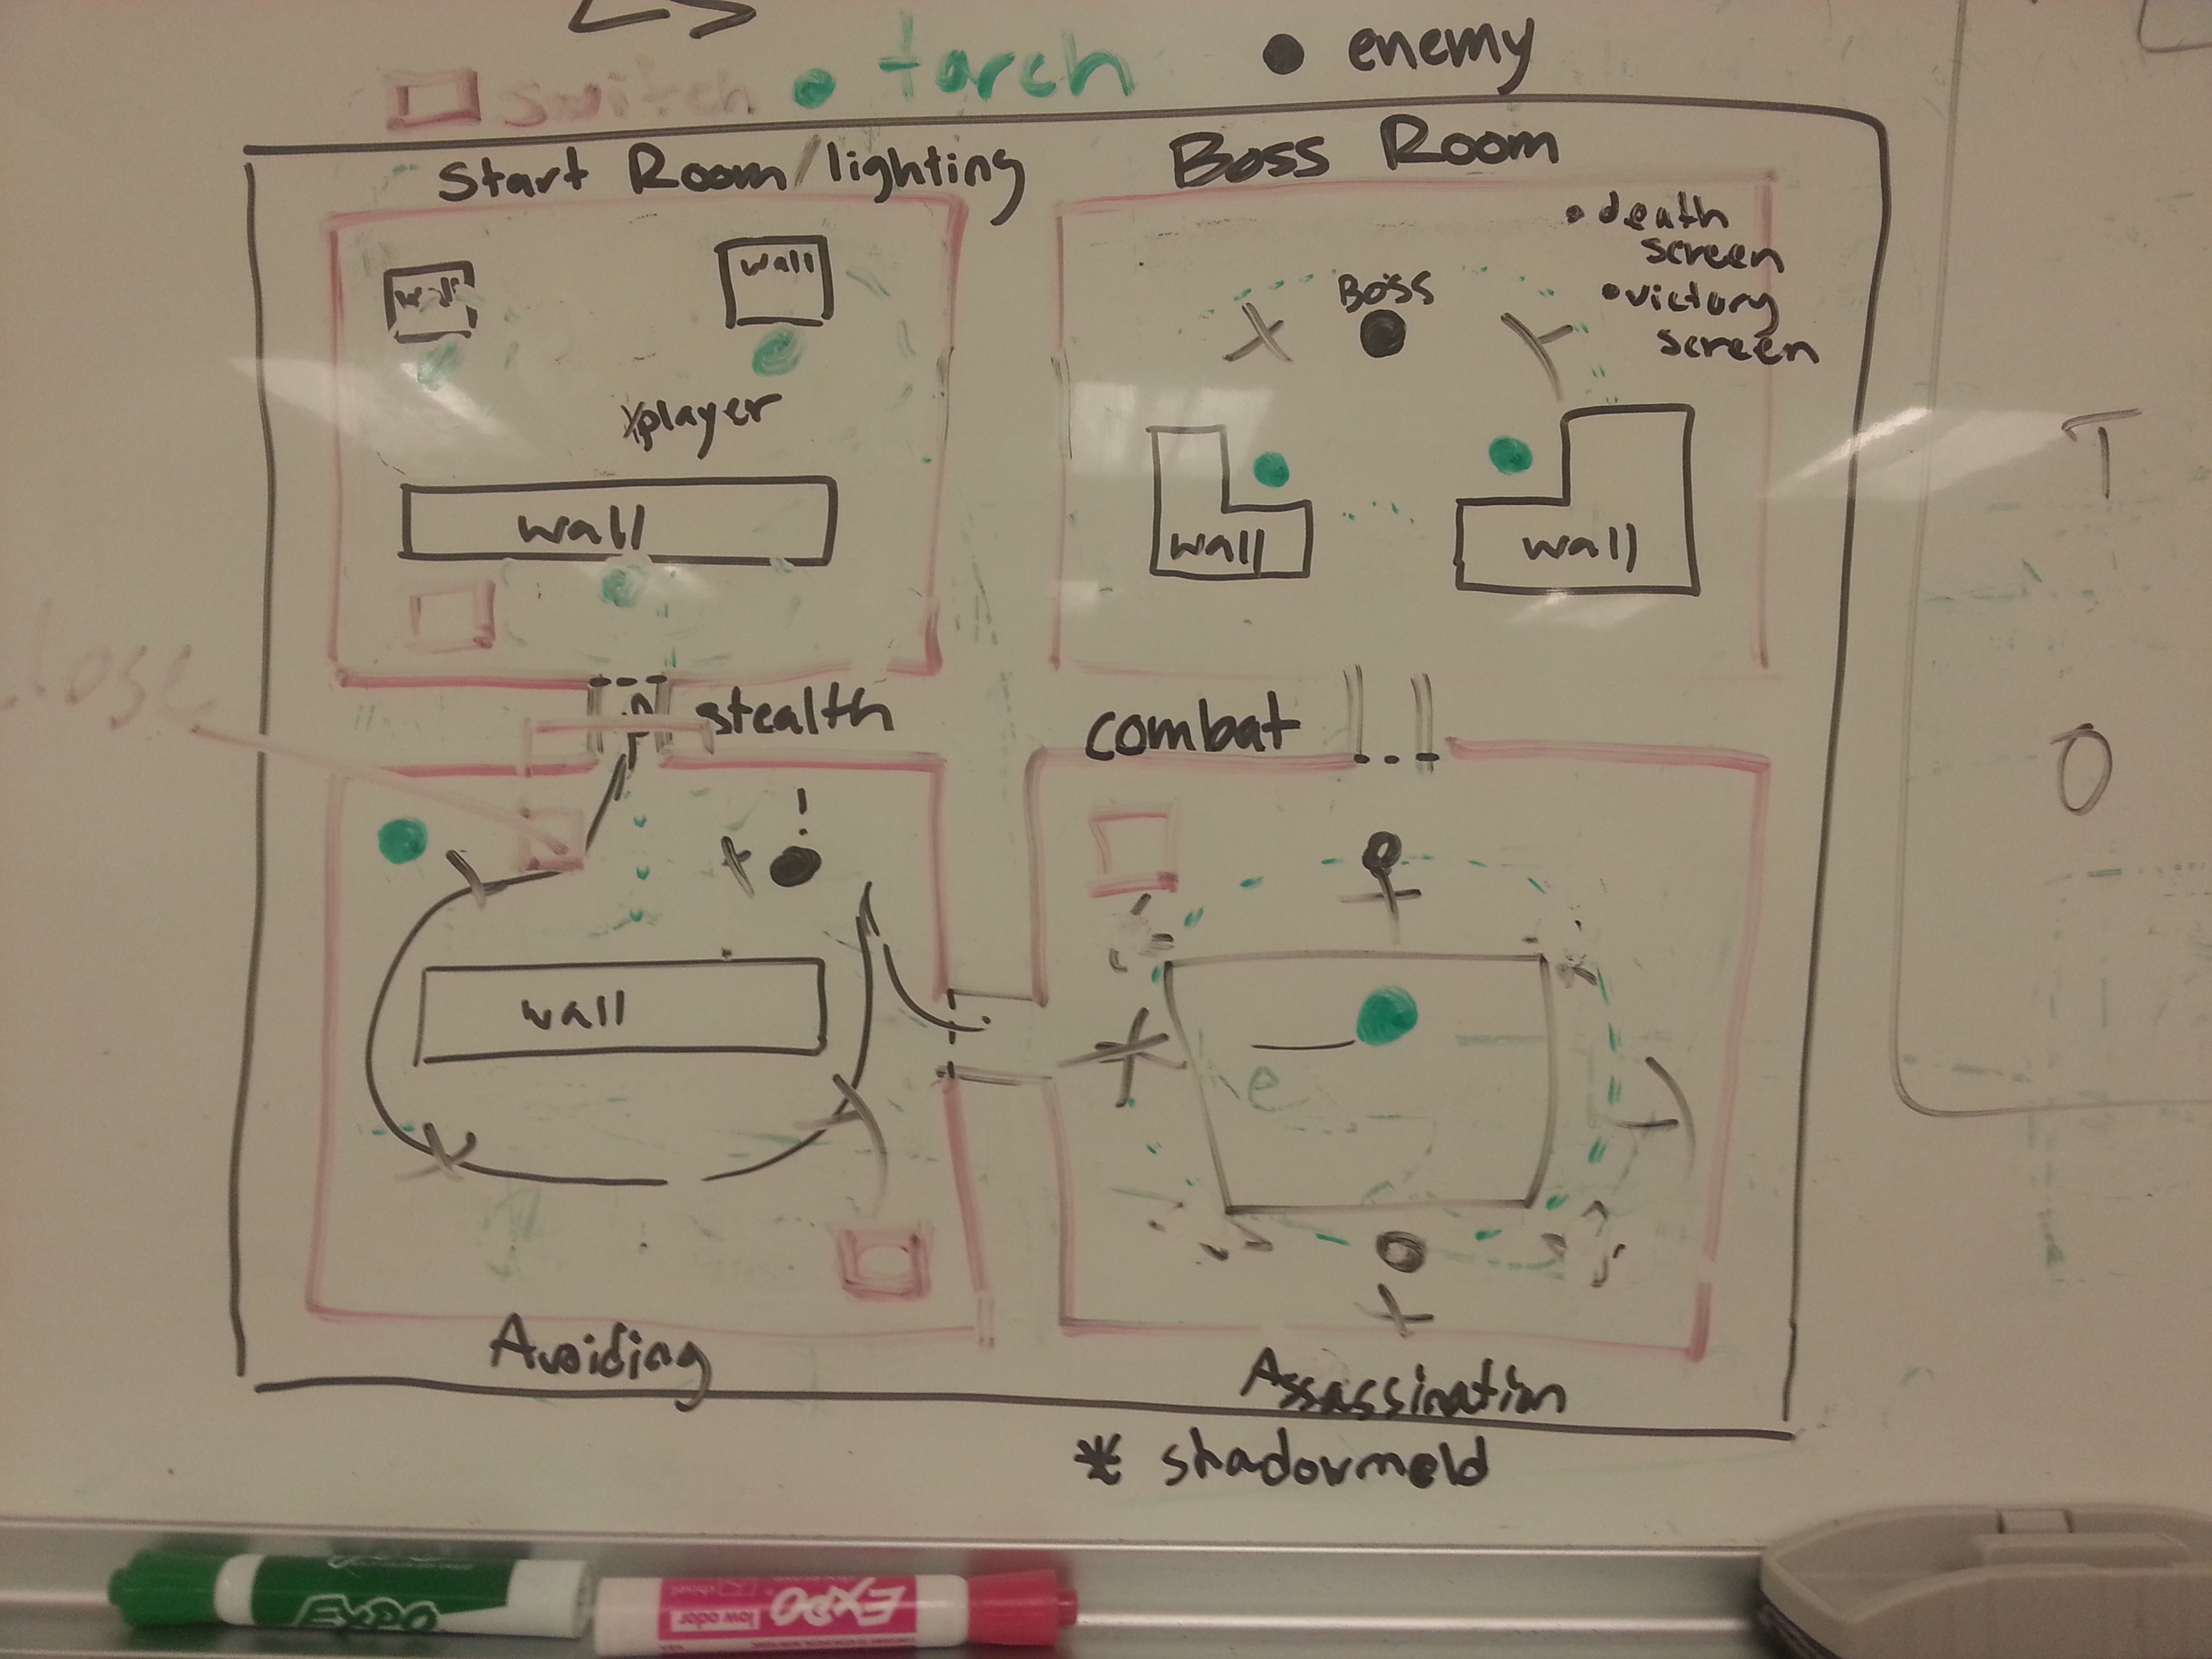 switch
torch
enemy
Start Room/lighting
Boss Room
wall
wall
• death
screen
• victory
screen
Boss
player
wall
wall
wall
close
stealth
combat
!
wall
Avoiding
Assassination
* shadowmeld
T
O
EXPO
EXPO
low odor